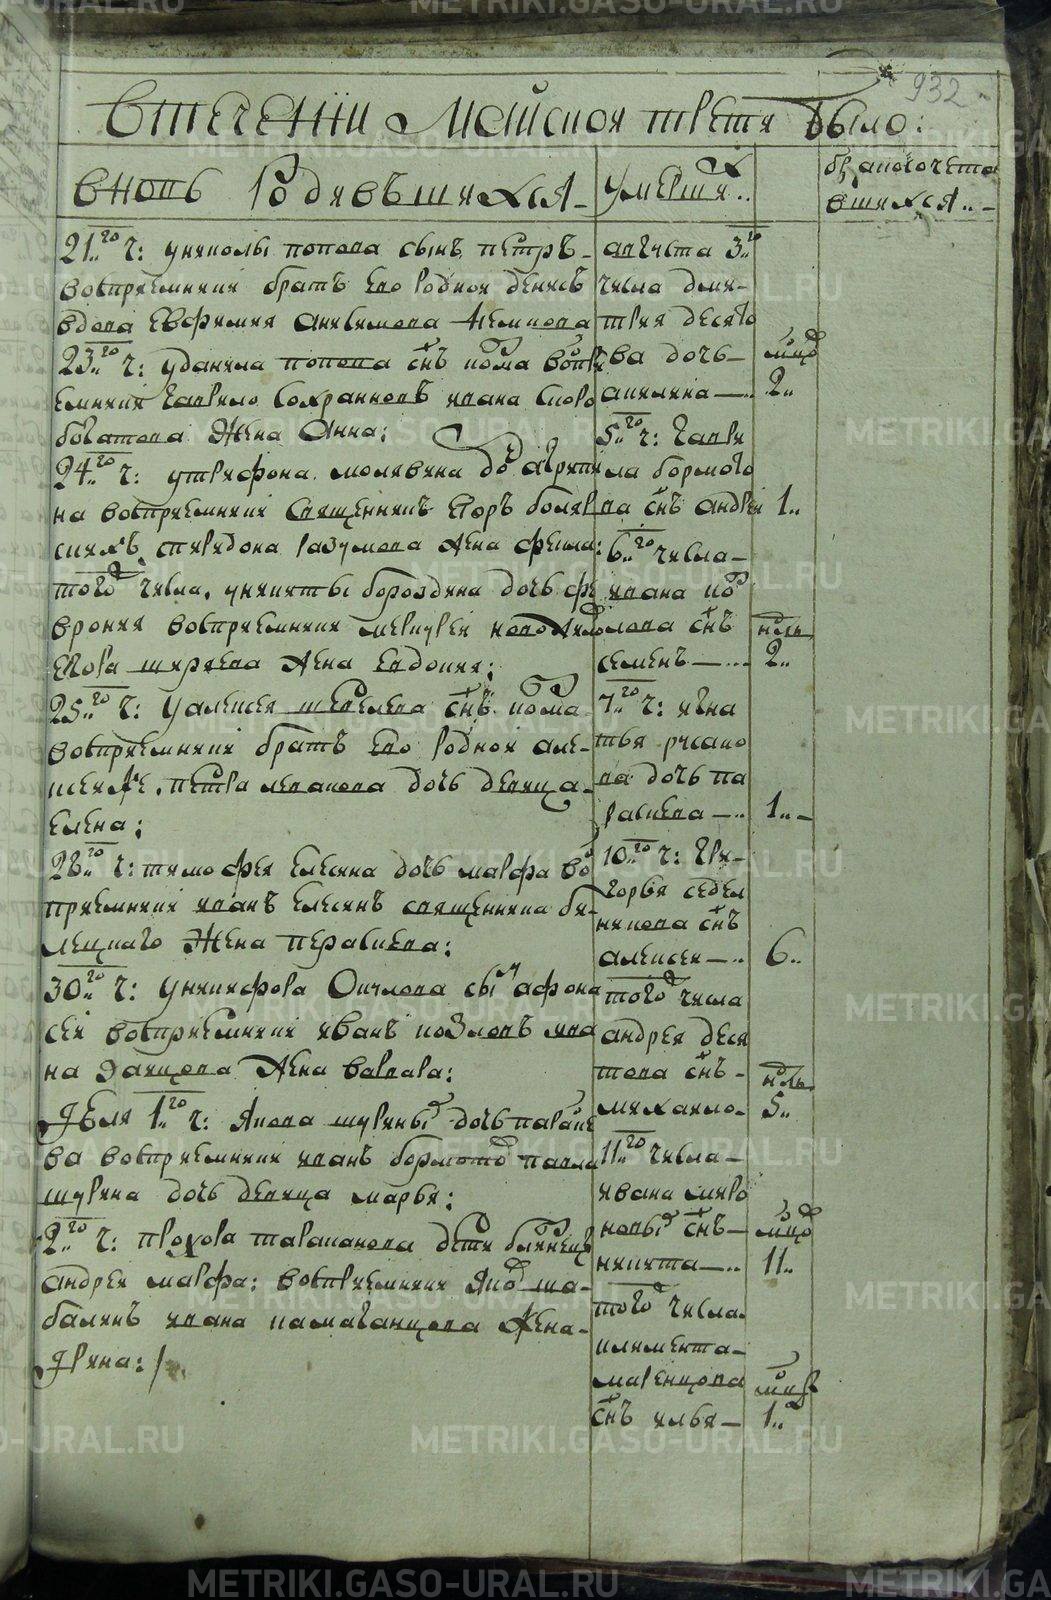 932
В течении Майской трети было:
вновь Родившихся
умерши..х
бракосочета
вшихся..
21..го ч: у николы попова сынъ петръ
восприемники братъ ево родной денисъ
вдова Евфимия анисимова
23..го ч: у данила попова снъ козма воспр
емники гаврило Сохранновъ ивана скоро
богатова жена Анна:
24..го ч: у трифона молявина до агрипи
на восприемники священникъ егоръ боляр
скихъ, спиридона разумова жена фекла:
того числа, у никиты бороздина дочь фе
врония восприемники меркурей
егора ширяева жена евдокия;
25..го ч: у алексея шевелева снъ козма
восприемники братъ ево родной але-
ксей же, петра леванова дочь девица
елена;
28..го ч: тимофея елесина дочь марфа во
приемники иванъ елесинъ священника би
лецкаго жена перасковя:
30..го ч: у никифора Окулова сы афона
сей восприемники иванъ козловъ ива
на Заицова жена варвара:
Июля 1..го ч: якова щукины дочь параске
ва восприемники иванъ бормото павла
щукина дочь девица марья:
2..го ч: прохора тараканова дети близнецы
андрей марфа: восприемники яко ша-
балинъ ивана камаганцова жена
Ирина:
августа 3..го
числа дми-
трия десято
ва дочь
акилина
мцо
2..
5..го ч: гаври
ла бормото
ва снъ андрей
1..
6..го числа
ивана ко
лова снъ
семенъ
нль
2..
7..го ч: игна
тья русано
ва дочь па
расковя
1..
10..го ч: гри-
горья седел
никова снъ
алексей
6..
того числа
андрея деся
това снъ
михаило
нль
5..
11..го числа
ивана миро
новы снъ
никита
мцо
11..
того числа
климента
маренцова
снъ илья
1..